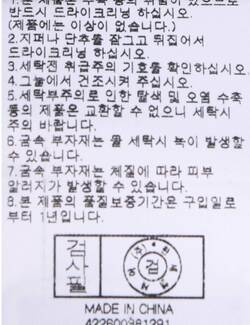 1.본 제품은 수축 등의 위험이 있으므로
반드시 드라이크리닝 하십시오.
(제품에는 이상이 없습니다.)
2.지퍼나 단추를 잠그고 뒤집어서
드라이크리닝 하십시오.
3.세탁전 취급주의 기호를 확인하십시오
4.그늘에서 건조시켜 주십시오.
5.세탁부주의로 인한 탈색 및 오염 수축
등의 제품은 교환할 수 없으니 세탁시
주의 바랍니다.
6.금속 부자재는 물 세탁시 녹이 발생할
수 있습니다.
7.금속 부자재는 체질에 따라 피부
알러지가 발생할 수 있습니다.
8.본 제품의 품질보증기간은 구입일로
부터 1년입니다.
검사필
(주)
검
MADE IN CHINA